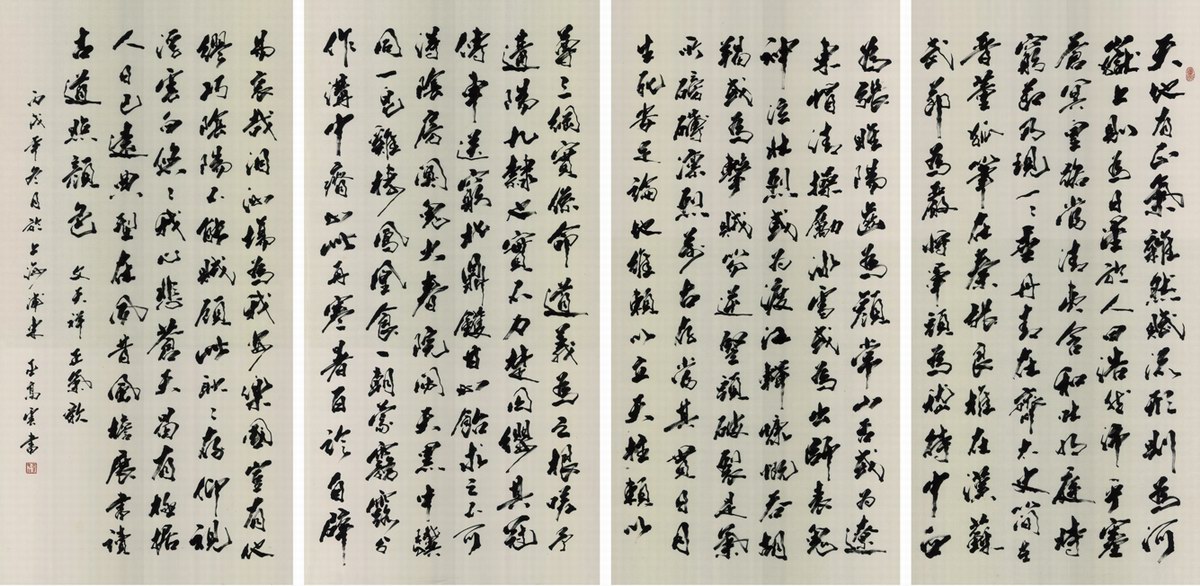 天地有正氣雜然賦流形則為河
嶽上則為日星於人曰浩然沛乎塞
蒼冥皇路當清夷含和吐明庭時
窮節乃現一々垂丹青在齊太史簡在
晉董狐筆在秦張良椎在漢蘇
武節為嚴將軍頭為嵇侍中血
為張睢陽齒為顏常山舌或為遼
東帽清操勵冰雪或為出師表鬼
神泣壯烈或為渡江楫慷慨吞胡
羯或為擊賊笏逆豎頭破裂是氣
所磅礴凜烈萬古存當其貫日月
生死安足論地維賴以立天柱賴以
尊三綱實係命道義為之根嗟予
遘陽九隸也實不力楚囚纓其冠
傳車送窮北鼎鑊甘如飴求之不可
得陰房闃鬼火春院閟天黑牛驥
同一皂雞棲鳳凰食一朝蒙霧露分
作溝中瘠如此再寒暑百沴自辟
易哀哉沮洳場為我安樂國豈有他
繆巧陰陽不能賊顧此耿々存仰視
浮雲白悠々我心悲蒼天曷有極哲
人日已遠典型在夙昔風檐展書讀
古道照顏色 文天祥正氣歌
丙戌年冬月於上海浦東 高雲書